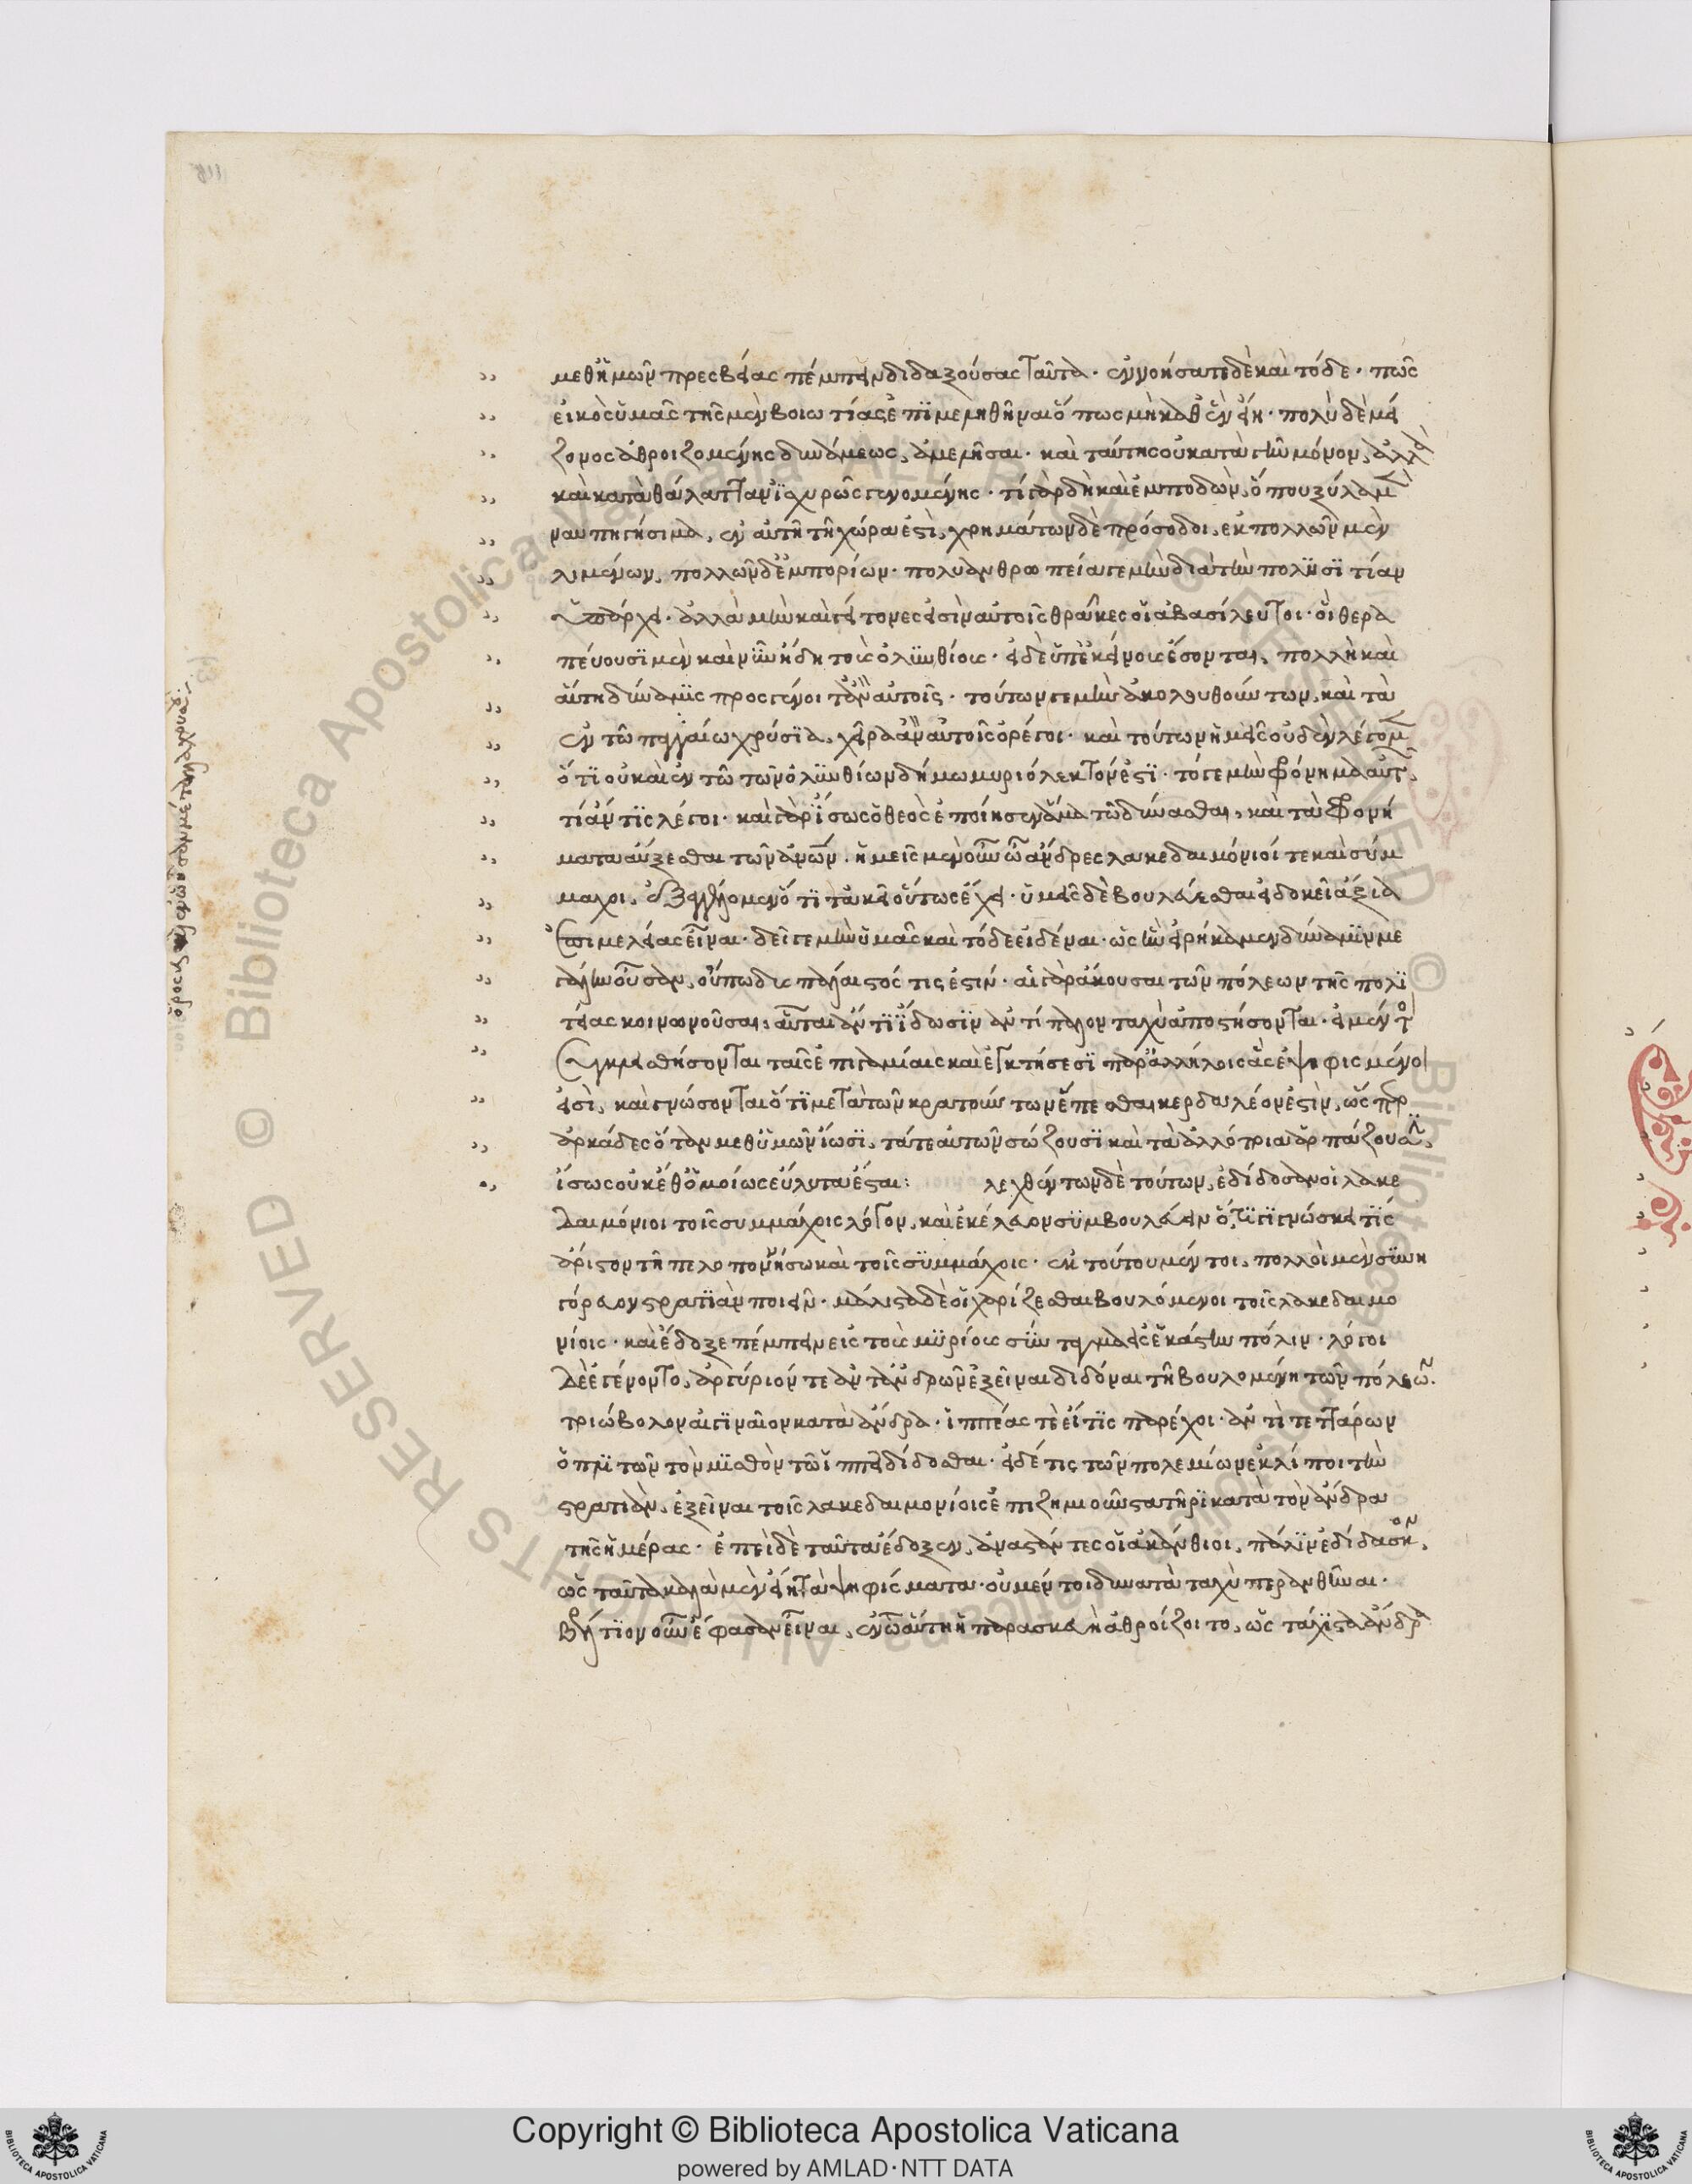 μεθ' ἡμῶν πρεσβείας πέμπειν διδαξούσας ταῦτα. ἐννοήσατε δὲ καὶ τόδε. πῶς
εἰκὸς ὑμᾶς τῆς μὲν βοιωτίας ἐπιμεμηθῆναι ὅπως μὴ καθ' ἓν εἴη. πολὺ δὲ μεί
ζονος ἀθροιζομένης δυνάμεως, ἀμελῆσαι. καὶ ταύτης οὐ κατὰ γῆν μόνον, ἀλλὰ
καὶ κατὰ θάλατταν ἰσχυρᾶς γενομένης. τί γὰρ δὴ καὶ ἐμποδών, ὅπου ξύλα μὲν
ναυπηγήσιμα, ἐν αὐτῇ τῇ χώρα ἐστὶ, χρημάτων δὲ πρόσοδοι, ἐκ πολλῶν μὲν
λιμένων, πολλῶν δ' ἐμπορίων. πολυανθρωπεία γε μὴν διὰ τὴν πολυσιτίαν
ὑπάρχει. ἀλλὰ μὴν καὶ γείτονες εἰσὶν αὐτοῖς θρᾷκες οἱ ἀβασίλευτοι. οἳ θερα
πεύουσι μὲν καὶ νῦν ἤδη τοὺς ὀλυνθίους. εἰ δὲ ὑπ' ἐκείνοις ἔσονται, πολλὴ καὶ
αὕτη δύναμις προσγένοιτ' ἂν αὐτοῖς. τούτων γε μὴν ἀκολουθούντων, καὶ τὰ
ἐν τῷ παγγαίω χρύσια, χεῖρα ἂν αὐτοῖς ὀρέγοι. καὶ τούτων ἡμεῖς οὐδὲν λέγομεν
ὅτι οὐ καὶ ἐν τῷ τῶν ὀλυνθίων δήμω μυριόλεκτόν ἐστι. τό γε μὴν φρόνημα αὐτῶν,
τί ἄν τις λέγοι. καὶ γὰρ ἴσως ὁ θεὸς ἐποίησεν ἅμα τῷ δύνασθαι, καὶ τὰ φρονή
ματα αὔξεσθαι τῶν ἀνθρώπων. ἡμεῖς μὲν οὖν ὦ ἄνδρες λακεδαιμόνιοί τε καὶ σύμ
μαχοι, ἐξαγγέλλομεν ὅτι τἀκεῖ οὕτως ἔχει. ὑμεῖς δὲ βουλεύεσθαι εἰ δοκεῖ ἄξια
ἐπιμελείας εἶναι. δεῖ γε μὴν ὑμᾶς καὶ τόδε εἰδέναι. ὡς ἣν εἰρήκαμεν δύναμιν με
γάλην οὖσαν, οὔπω δυσπάλαιστός τις ἐστίν. αἱ γὰρ ἄκουσαι τῶν πόλεων τῆς πολι
τείας κοινωνοῦσαι, αὗται ἄν τι ἴδωσιν ἀντίπαλον ταχὺ ἀποστήσονται. εἰ μέντοι
συγκλεισθήσονται ταῖς ἐπιγαμίαις καὶ ἐγκτήσεσι παρ' ἀλλήλοις ἃς ἐψηφισμένοι
εἰσὶ, καὶ γνώσονται ὅτι μετὰ τῶν κρατούντων ἕπεσθαι κερδαλέον ἐστίν, ὥσπερ
ἀρκάδες ὅταν μεθ' ὑμῶν ἴωσι, τά τε αὑτῶν σώζουσι καὶ τὰ ἀλλότρια ἁρπάζουσιν,
ἴσως οὐκέθ' ὁμοίως εὔλυτα ἔσται: λεχθέντων δὲ τούτων, ἐδίδοσαν οἱ λακε
δαιμόνιοι τοῖς συμμάχοις λόγον, καὶ ἐκέλευον συμβουλεύειν ὅ,τι γιγνώσκει τις
ἄριστον τῇ πελοποννήσω καὶ τοῖς συμμάχοις. ἐκ τούτου μέντοι, πολλοὶ μὲν συνη
γόρευον στρατιὰν ποιεῖν. μάλιστα δὲ οἱ χαρίζεσθαι βουλόμενοι τοῖς λακεδαιμο
νίοις. καὶ ἔδοξε πέμπειν εἰς τοὺς μυρίους σύνταγμα ἑκάστην πόλιν. λόγοι
δὲ ἐγένοντο, ἀργύριόν τε ἀντ' ἀνδρῶν ἐξεῖναι διδόναι τῇ βουλομένη τῶν πόλεων.
τριώβολον αἰγιναῖον κατὰ ἄνδρα. ἱππέας τὲ εἴ τις παρέχοι. ἀντὶ τεττάρων
ὁπλιτῶν τὸν μισθὸν τῷ ἱππεῖ δίδοσθαι. εἰ δέ τις τῶν πολεμίων ἐκλίποι τὴν
στρατιὰν, ἐξεῖναι τοῖς λακεδαιμονίοις ἐπιζημιοῦν στατῆρι κατὰ τὸν ἄνδρα
τῆς ἡμέρας. ἐπεὶ δὲ ταῦτα ἔδοξεν, ἀναστάντες οἱ ἀκάνθιοι, πάλιν ἐδίδασκον,
ὡς ταῦτα καλὰ μὲν εἴη τὰ ψηφίσματα. οὐ μέντοι δυνατὰ ταχὺ περανθῆναι.
βέλτιον οὖν ἔφασαν εἶναι, ἐν ᾧ αὕτη ἡ παρασκευὴ ἀθροίζοιτο, ὡς τάχιστα ἄνδρα